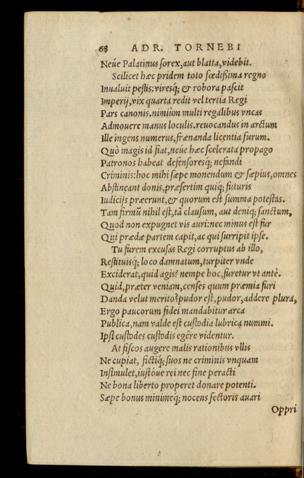 68 ADR. TORNEBI
Neúe Palatinus sorex, aut blatta, videbit.
Scilicet hæc pridem toto fœdißima regno
Inualuit pestis: viresq; & robora pascit
Imperij, vix quarta redit vel tertia Regi
Pars canonis, nimiùm multi regalibus vncas
Admouere manus loculis. reuocandus in arctum
Ille ingens numerus, frænanda licentia furum.
Quò magis id fiat, neue hæc scelerata propago
Patronos habeat defensoresq; nefandi
Criminis: hoc mihi sæpe monendum & sæpius, omnes
Abstineant donis, præsertim quiq; futuris
Iudicijs præerunt, & quorum est summa potestas.
Tam firmũ nihil est, tã clausum, aut deniq; sanctum,
Quod non expugnet vis auri: nec minus est fur
Qui prædæ partem capit, ac qui surripit ipse.
Tu furem excusas Regi corruptus ab illo,
Restituisq; loco damnatum, turpiter vnde
Exciderat, quid agis? nempe hoc, furetur vt antè.
Quid, præter veniam, censes quum præmia furi
Danda velut merito? pudor est, pudor, addere plura,
Ergo paucorum fidei mandabitur arca
Publica, nam valde est custodia lubrica nummi.
Ipsi custodes custodis egêre videntur.
At fiscos augere malis rationibus vllis
Ne cupiat, fictiq; suos ne criminis vnquam
Instimulet, iustóue rei nec fine peracti
Ne bona liberto properet donare potenti.
Sæpe bonus minimeq; nocens sectoris auari
Oppri